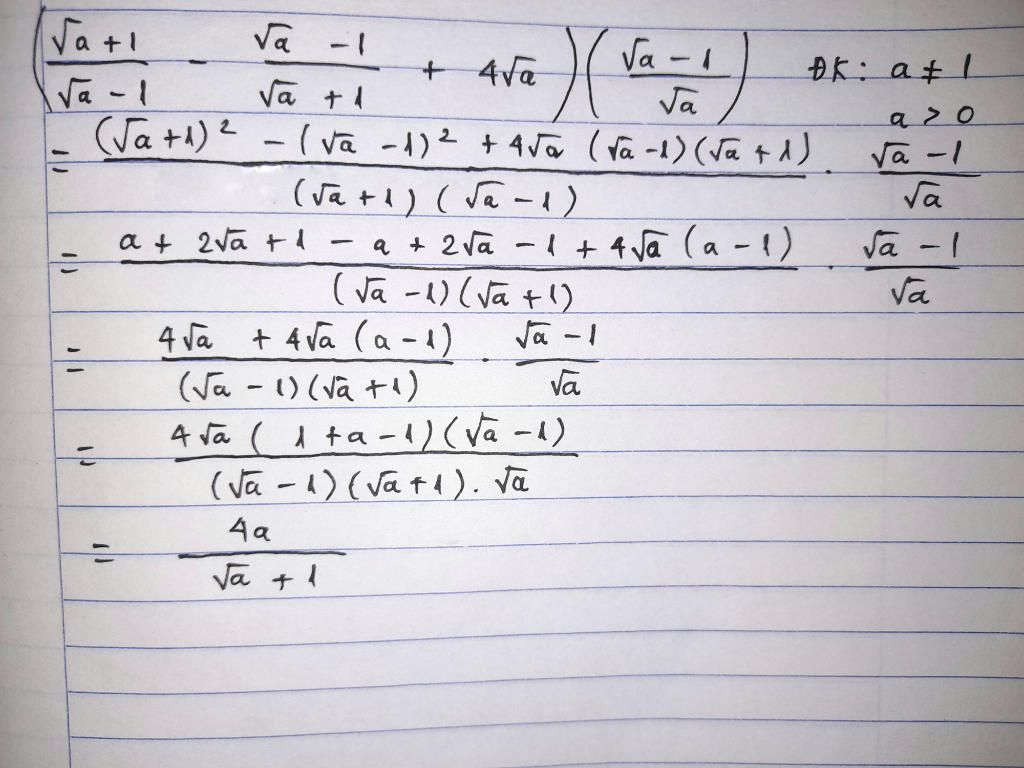 (√a + 1 / √a - 1 - √a - 1 / √a + 1 + 4√a)(√a - 1 / √a) ĐK: a ≠ 1
a > 0
= (√a + 1)² - (√a - 1)² + 4√a (√a - 1)(√a + 1) / (√a + 1)(√a - 1) . √a - 1 / √a
= a + 2√a + 1 - a + 2√a - 1 + 4√a (a - 1) / (√a - 1)(√a + 1) . √a - 1 / √a
= 4√a + 4√a (a - 1) / (√a - 1)(√a + 1) . √a - 1 / √a
= 4√a (1 + a - 1)(√a - 1) / (√a - 1)(√a + 1) . √a
= 4a / √a + 1